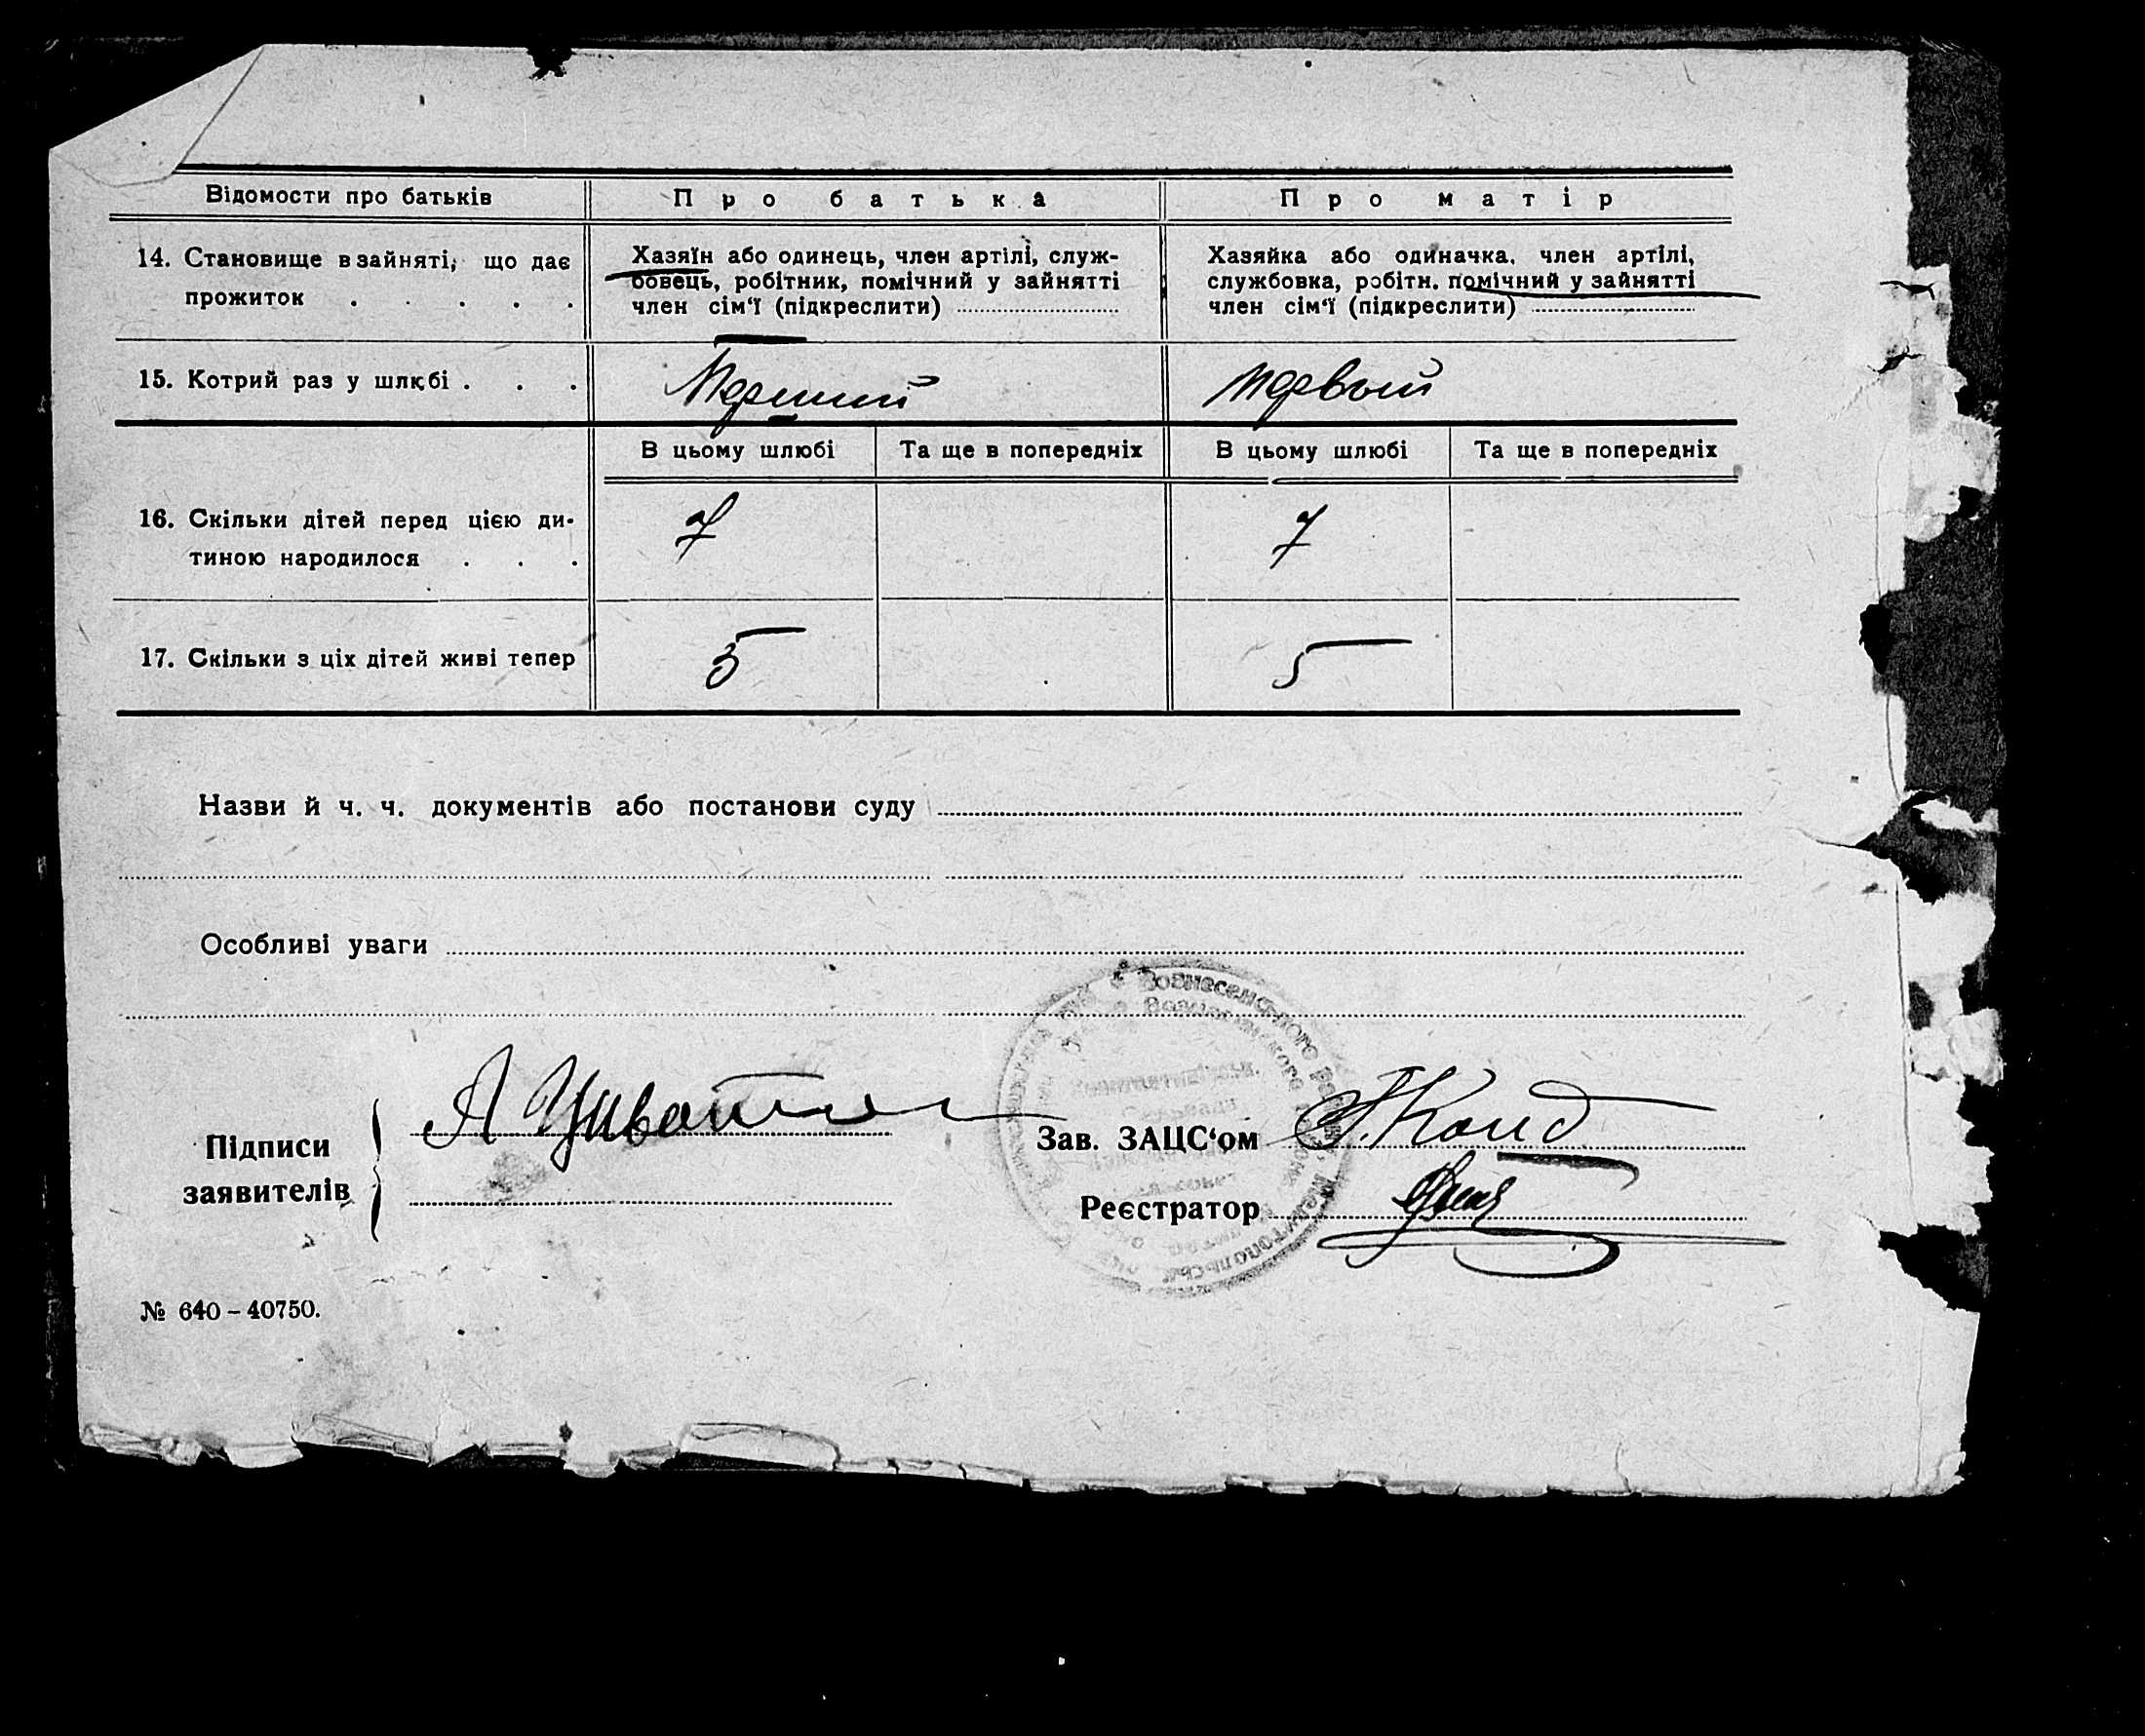 Відомости про батьків
Про батька
Про матір
14. Становище в зайняті, що дає
прожиток . . . . .
Хазяїн або одинець, член артілі, служ-
бовець, робітник, помічний у зайнятті
член сім'ї (підкреслити)
Хазяйка або одиначка, член артілі,
службовка, робітн. помічний у зайнятті
член сім'ї (підкреслити)
15. Котрий раз у шлюбі . . .
Перший
первый
В цьому шлюбі
Та ще в попередніх
В цьому шлюбі
Та ще в попередніх
16. Скільки дітей перед цією ди-
тиною народилося . . .
7
7
17. Скільки з ціх дітей живі тепер
5
5
Назви й ч. ч. документів або постанови суду
Особливі уваги
Вознесенського Району Мелітопольськ
Підписи
заявителів
Зав. ЗАЦС'ом
Реєстратор
№ 640 – 40750.